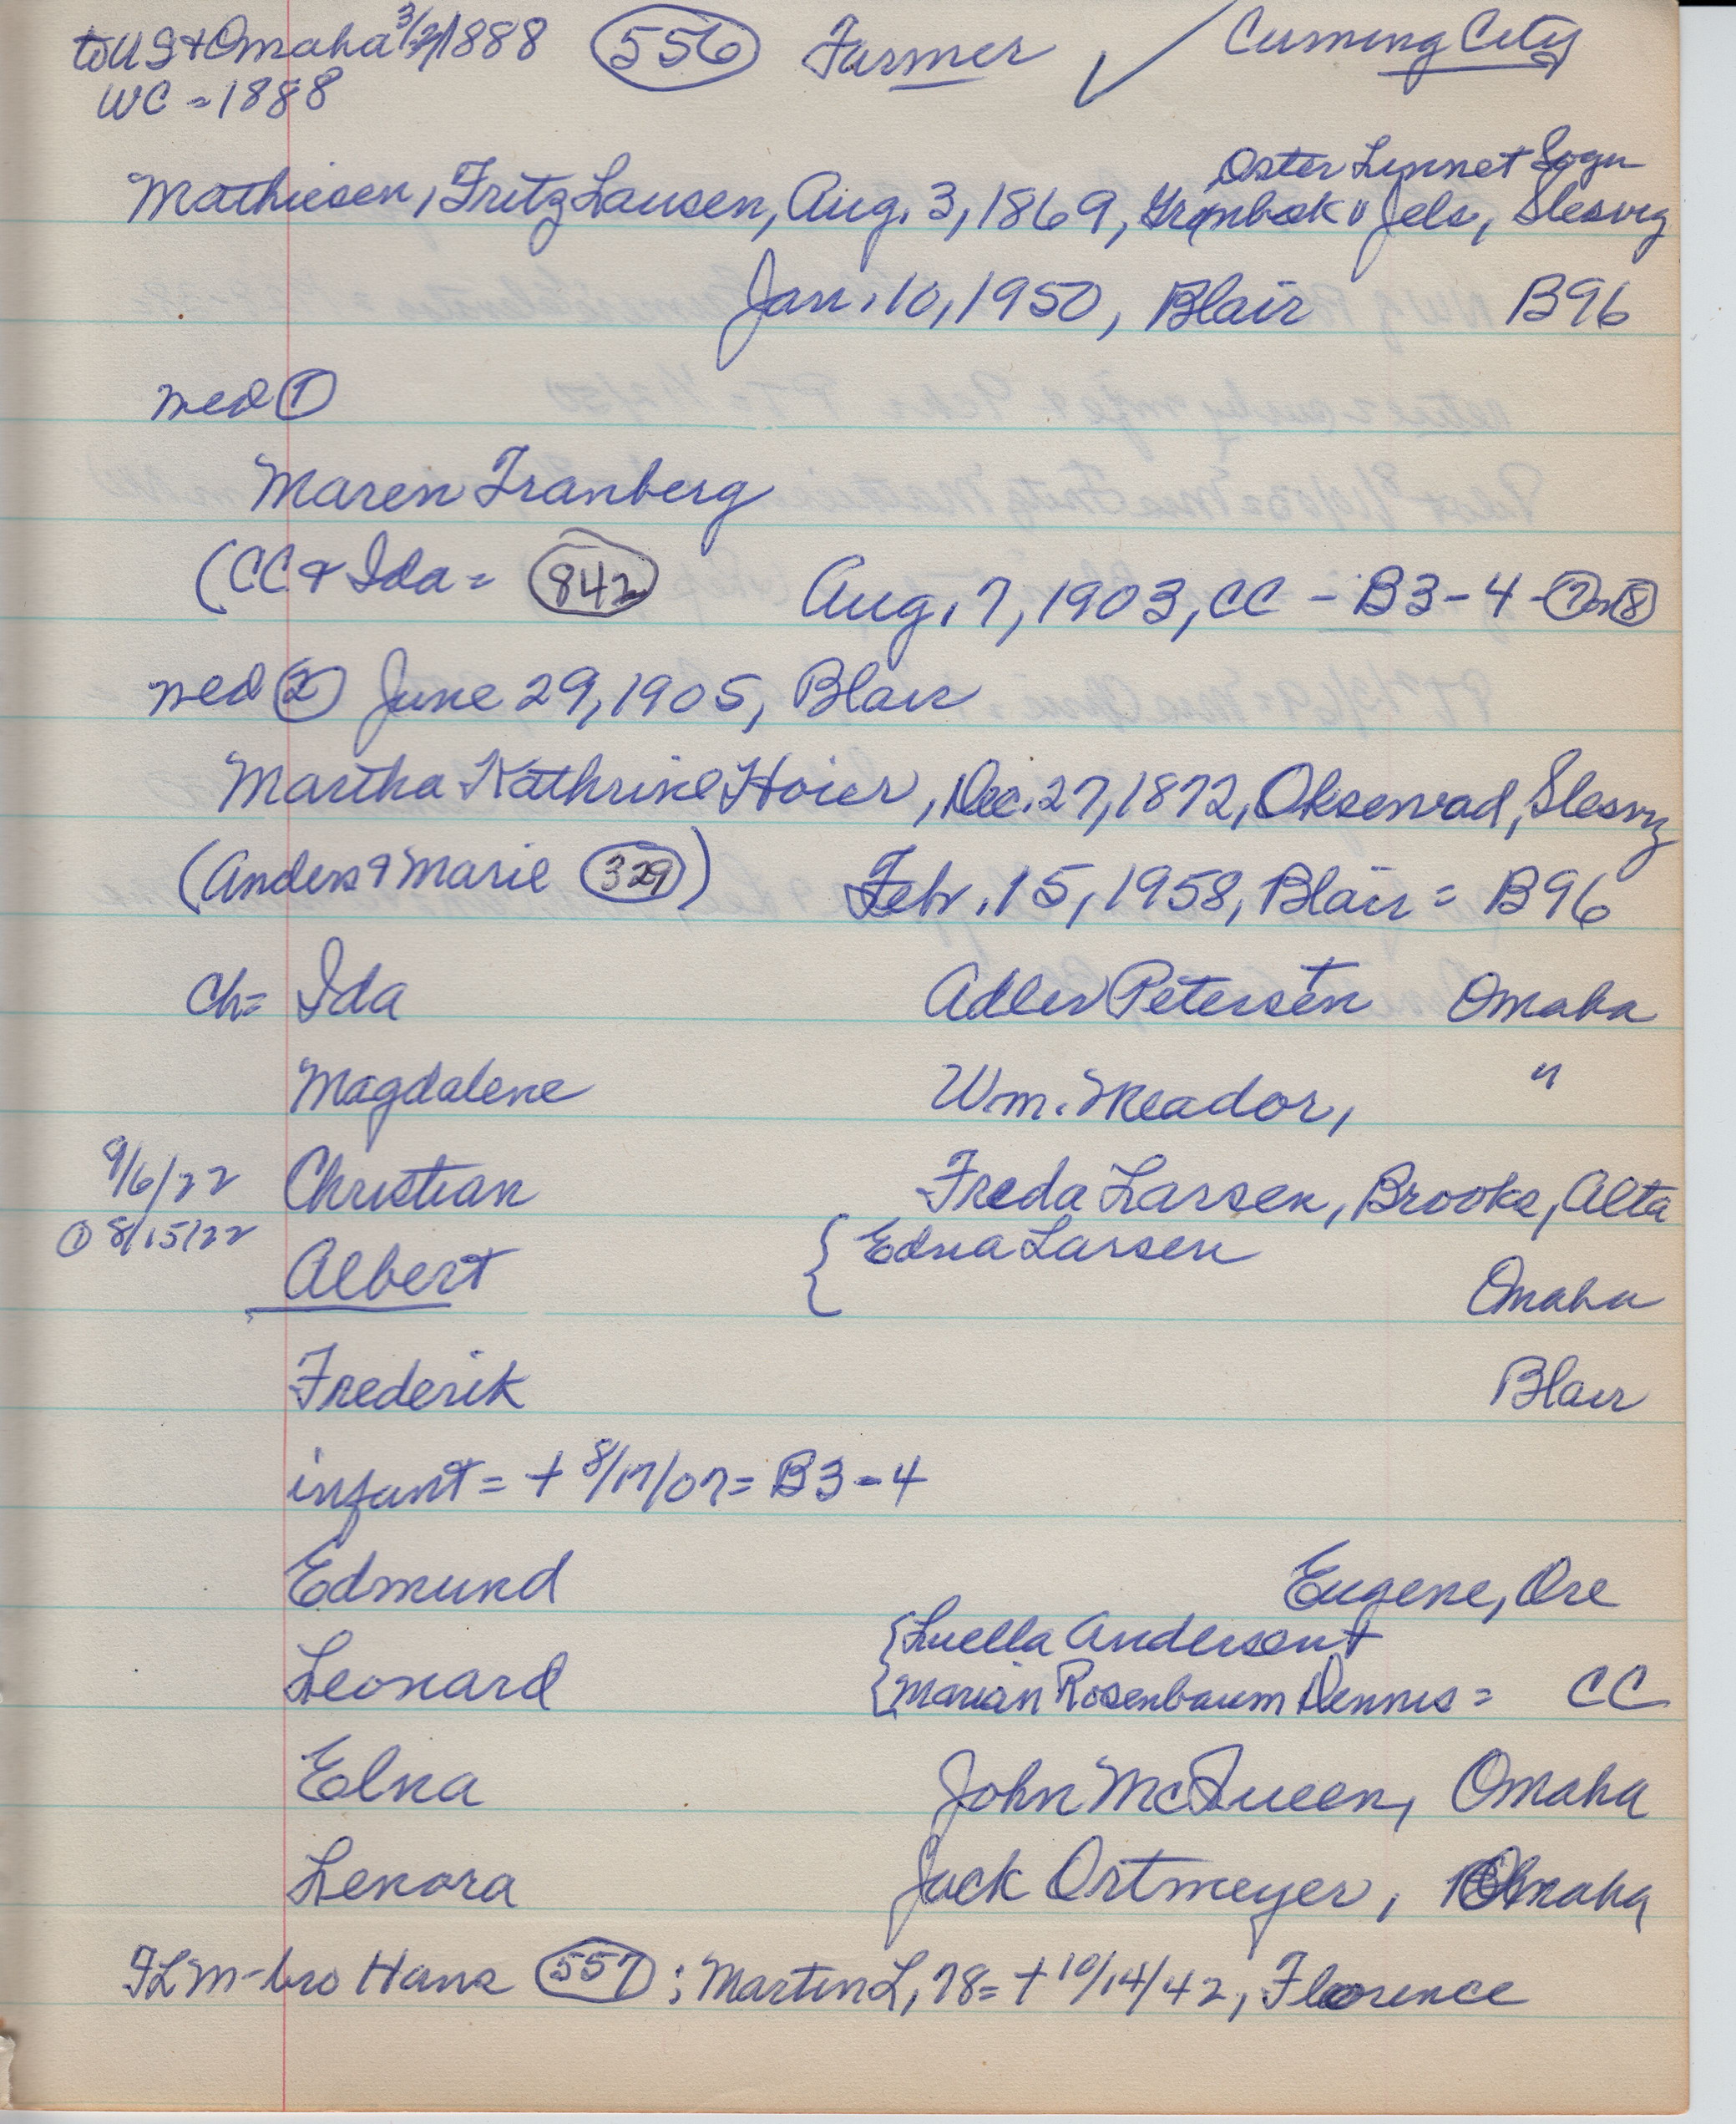 to US + Omaha 3/2/1888 (556) Farmer ✓ Cuming City
WC = 1888
Oster Linnet Sogn
Mathiesen, Fritz Lausen, Aug. 3, 1869, Grønbæk v Jels, Slesvig
Jan. 10, 1950, Blair B96
med ①
Maren Tranberg
(CC & Ida = (842) Aug. 7, 1903, CC - B3-4-⑦ or ⑧
med ② June 29, 1905, Blair
Martha Kathrine Hoier, Dec. 27, 1872, Oksenvad, Slesvig
(Anders & Marie (329)) Febr. 15, 1958, Blair = B96
Ch= Ida Adler Petersen + Omaha
Magdalene Wm. Meador, "
9/6/22 Christian Freda Larsen, Brooks, Alta
① 8/15/22 { Edna Larsen
Albert Omaha
Frederik Blair
infant = + 8/17/07 = B3-4
Edmund Eugene, Ore
{ Luella Anderson +
Leonard { Marian Rosenbaum Dennis = CC
Elna John McQueen, Omaha
Lenora Jack Ortmeyer, Omaha
FLM-bro Hans (557); Martin L, 78 = + 10/14/42, Florence